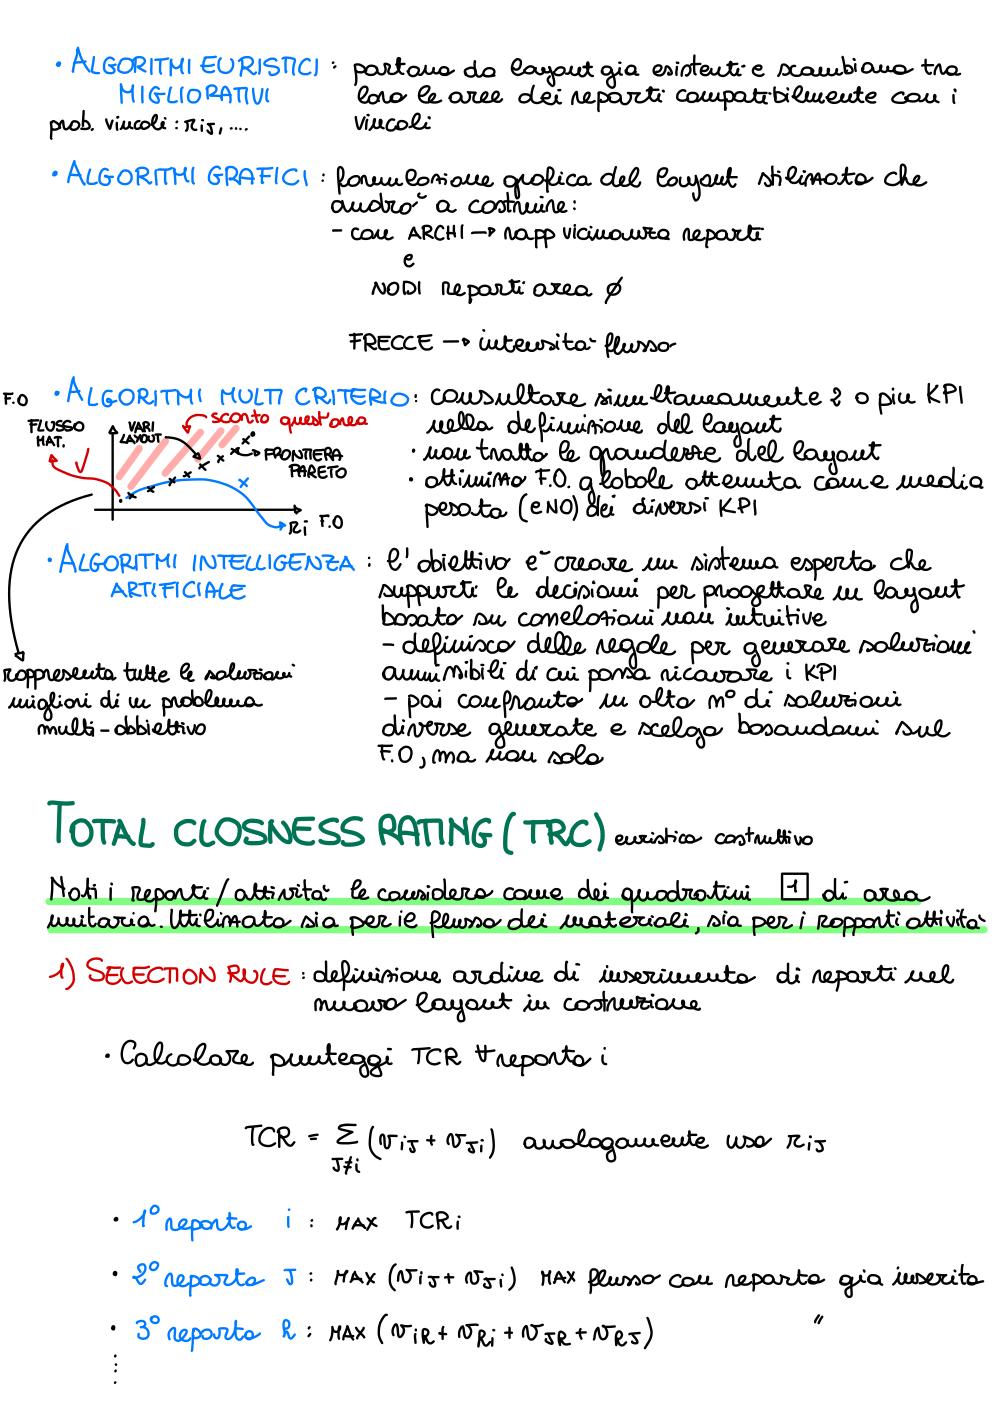 • ALGORITMI EURISTICI : partono da layout gia esistenti e scambiano tra
MIGLIORATIVI loro le aree dei reparti compatibilmente con i
prob. vincoli : rij, .... vincoli
• ALGORITMI GRAFICI : formulazione grafica del layout stilizzato che
andrò a costruire:
- con ARCHI → rapp vicinanza reparti
e
NODI reparti area ∅
FRECCE → intensità flusso
• ALGORITMI MULTI CRITERIO : consultare simultaneamente 2 o piu KPI
nella definizione del layout
• non tratto le grandezze del layout
• ottimizzo F.O. globale ottenuta come media
pesata (e NO) dei diversi KPI
F.O
sconto quest'area
FLUSSO
MAT.
VARI
LAYOUT
FRONTIERA
PARETO
Ri F.O
• ALGORITMI INTELLIGENZA : l'obiettivo è creare un sistema esperto che
ARTIFICIALE supporti le decisioni per progettare un layout
basato su correlazioni non intuitive
- definisco delle regole per generare soluzioni
ammissibili di cui possa ricavare i KPI
- poi confronto un alto n° di soluzioni
diverse generate e scelgo basandomi sul
F.O, ma non solo
rappresenta tutte le soluzioni
migliori di un problema
multi-obbiettivo
TOTAL CLOSNESS RATING (TRC) euristico costruttivo
Noti i reparti/attività le considero come dei quadratini 1 di area
unitaria. Utilizzato sia per il flusso dei materiali, sia per i rapporti attività
1) SELECTION RULE : definizione ordine di inserimento di reparti nel
nuovo layout in costruzione
• Calcolare punteggi TCR ∀ reparto i
TCR = Σ (vij + vji) analogamente uso rij
J≠i
• 1° reparto i : MAX TCRi
• 2° reparto J : MAX (vij + vji) MAX flusso con reparto gia inserito
• 3° reparto k : MAX (vik + vki + vjk + vkj) "